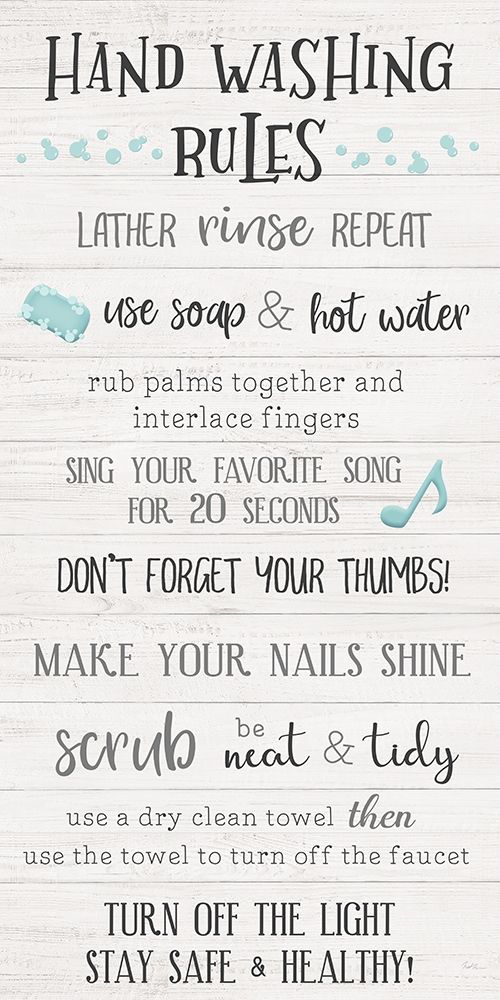 HAND WASHING
RULES
LATHER rinse REPEAT
use soap & hot water
rub palms together and
interlace fingers
SING YOUR FAVORITE SONG
FOR 20 SECONDS
DON'T FORGET YOUR THUMBS!
MAKE YOUR NAILS SHINE
scrub be neat & tidy
use a dry clean towel then
use the towel to turn off the faucet
TURN OFF THE LIGHT
STAY SAFE & HEALTHY!